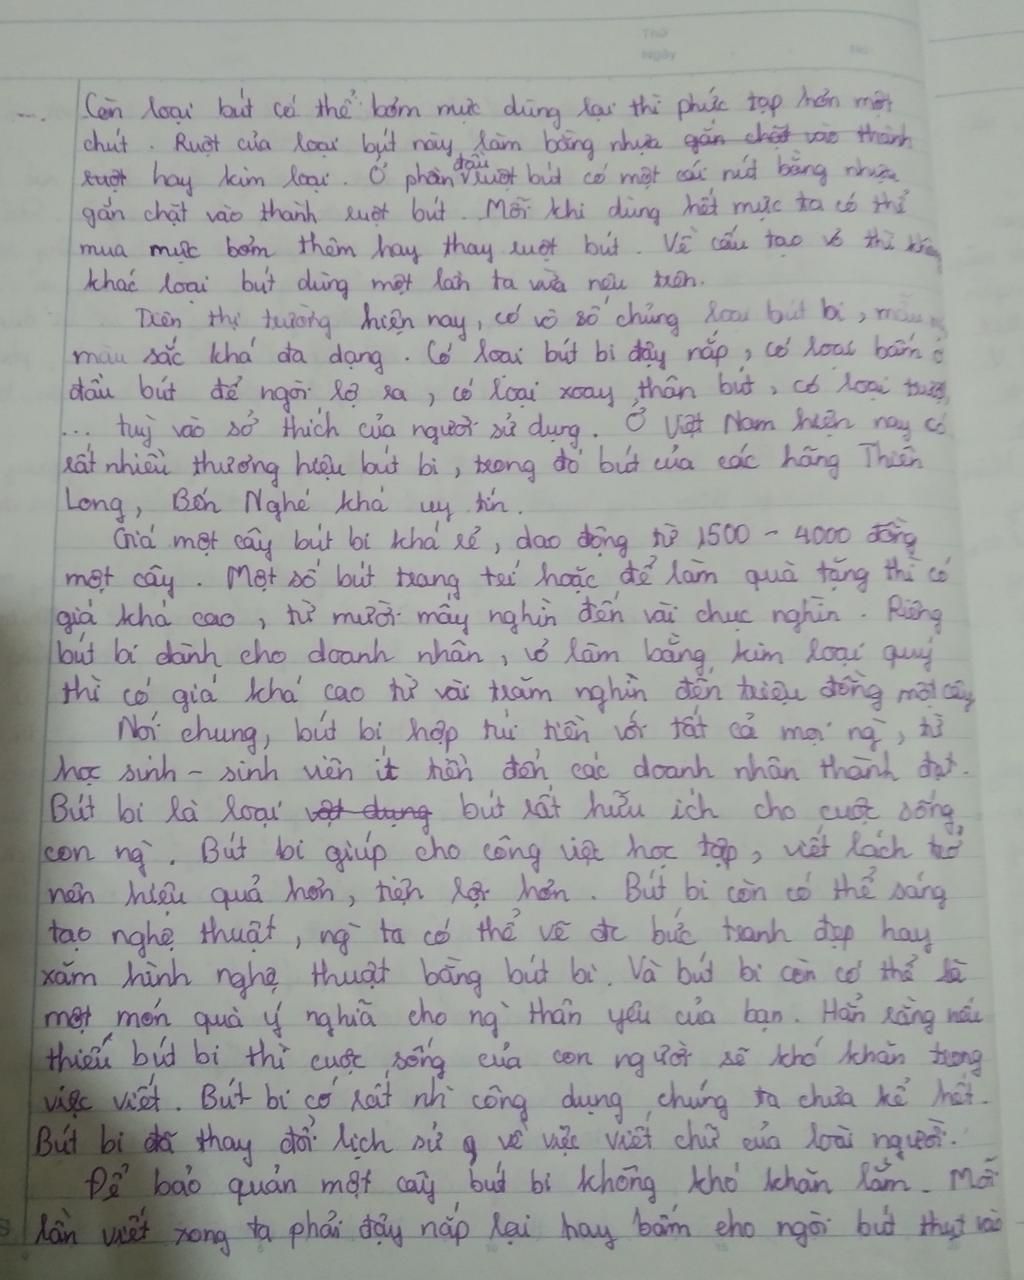 Thứ
Ngày
No
... Còn loại bút có thể bơm mực dùng lại thì phức tạp hơn một
chút. Ruột của loại bút này làm bằng nhựa gắn chặt vào thành
ruột hay kim loại. Ở phần đầu ruột bút có một cái nút bằng nhựa
gắn chặt vào thành ruột bút. Mỗi khi dùng hết mực ta có thể
mua mực bơm thêm hay thay ruột bút. Về cấu tạo vỏ thì
khác loại bút dùng một lần ta vừa nêu trên.
Trên thị trường hiện nay, có vô số chủng loại bút bi, mẫu
màu sắc khá đa dạng. Có loại bút bi đậy nắp, có loại bấm ở
đầu bút để ngòi lộ ra, có loại xoay thân bút, có loại
... tuỳ vào sở thích của người sử dụng. Ở Việt Nam hiện nay có
rất nhiều thương hiệu bút bi, trong đó bút của các hãng Thiên
Long, Bến Nghé khá uy tín.
Giá một cây bút bi khá rẻ, dao động từ 1500 - 4000 đồng
một cây. Một số bút trang trí hoặc để làm quà tặng thì có
giá khá cao, từ mười mấy nghìn đến vài chục nghìn. Riêng
bút bi dành cho doanh nhân, vỏ làm bằng kim loại quý
thì có giá khá cao từ vài trăm nghìn đến triệu đồng một cây
Nói chung, bút bi hợp túi tiền với tất cả mọi ng`, từ
học sinh - sinh viên ít tiền đến các doanh nhân thành đạt.
Bút bi là loại vật dụng bút rất hữu ích cho cuộc sống
con ng`. Bút bi giúp cho công việc học tập, viết lách trở
nên hiệu quả hơn, tiện lợi hơn. Bút bi còn có thể sáng
tạo nghệ thuật, ng` ta có thể vẽ đc bức tranh đẹp hay
xăm hình nghệ thuật bằng bút bi. Và bút bi còn có thể là
một món quà ý nghĩa cho ng` thân yêu của bạn. Hẳn rằng nếu
thiếu bút bi thì cuộc sống của con người sẽ khó khăn trong
việc viết. Bút bi có rất nhì công dụng chúng ta chưa kể hết.
Bút bi đã thay đổi lịch sử q về việc viết chữ của loài người.
Để bảo quản một cây bút bi không khó khăn lắm. Mỗi
lần viết xong ta phải đậy nắp lại hay bấm cho ngòi bút thụt vào